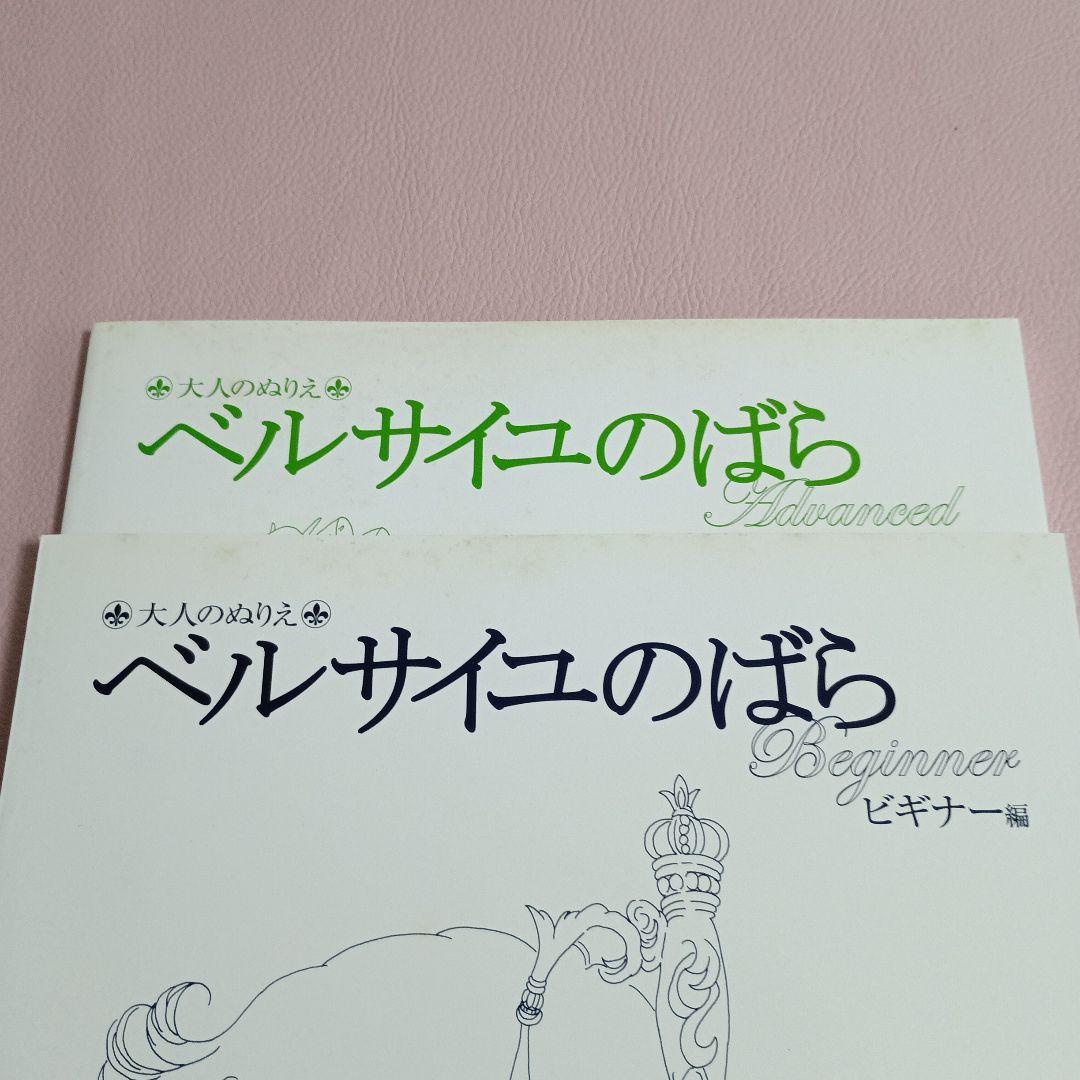 大人のぬりえ
ベルサイユのばら
Advanced
大人のぬりえ
ベルサイユのばら
Beginner
ビギナー編